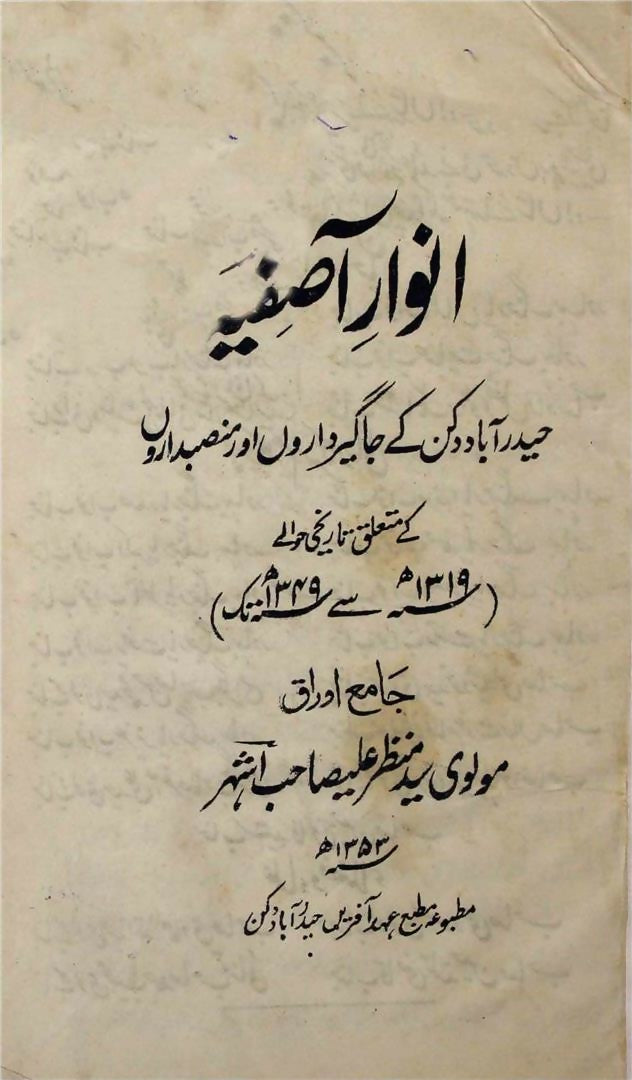 انوارِ آصفِیہ
حیدرآباد دکن کے جاگیرداروں اور منصبداروں
کے متعلق تاریخی حوالے
(سنہ ۱۳۱۹ھ سے سنہ ۱۳۴۹ھ تک)
جامع اوراق
مولوی سید منظر علیصاحب اشہر
سنہ ۱۳۵۳ھ
مطبوعہ مطبع عہد آفریں حیدرآباد دکن